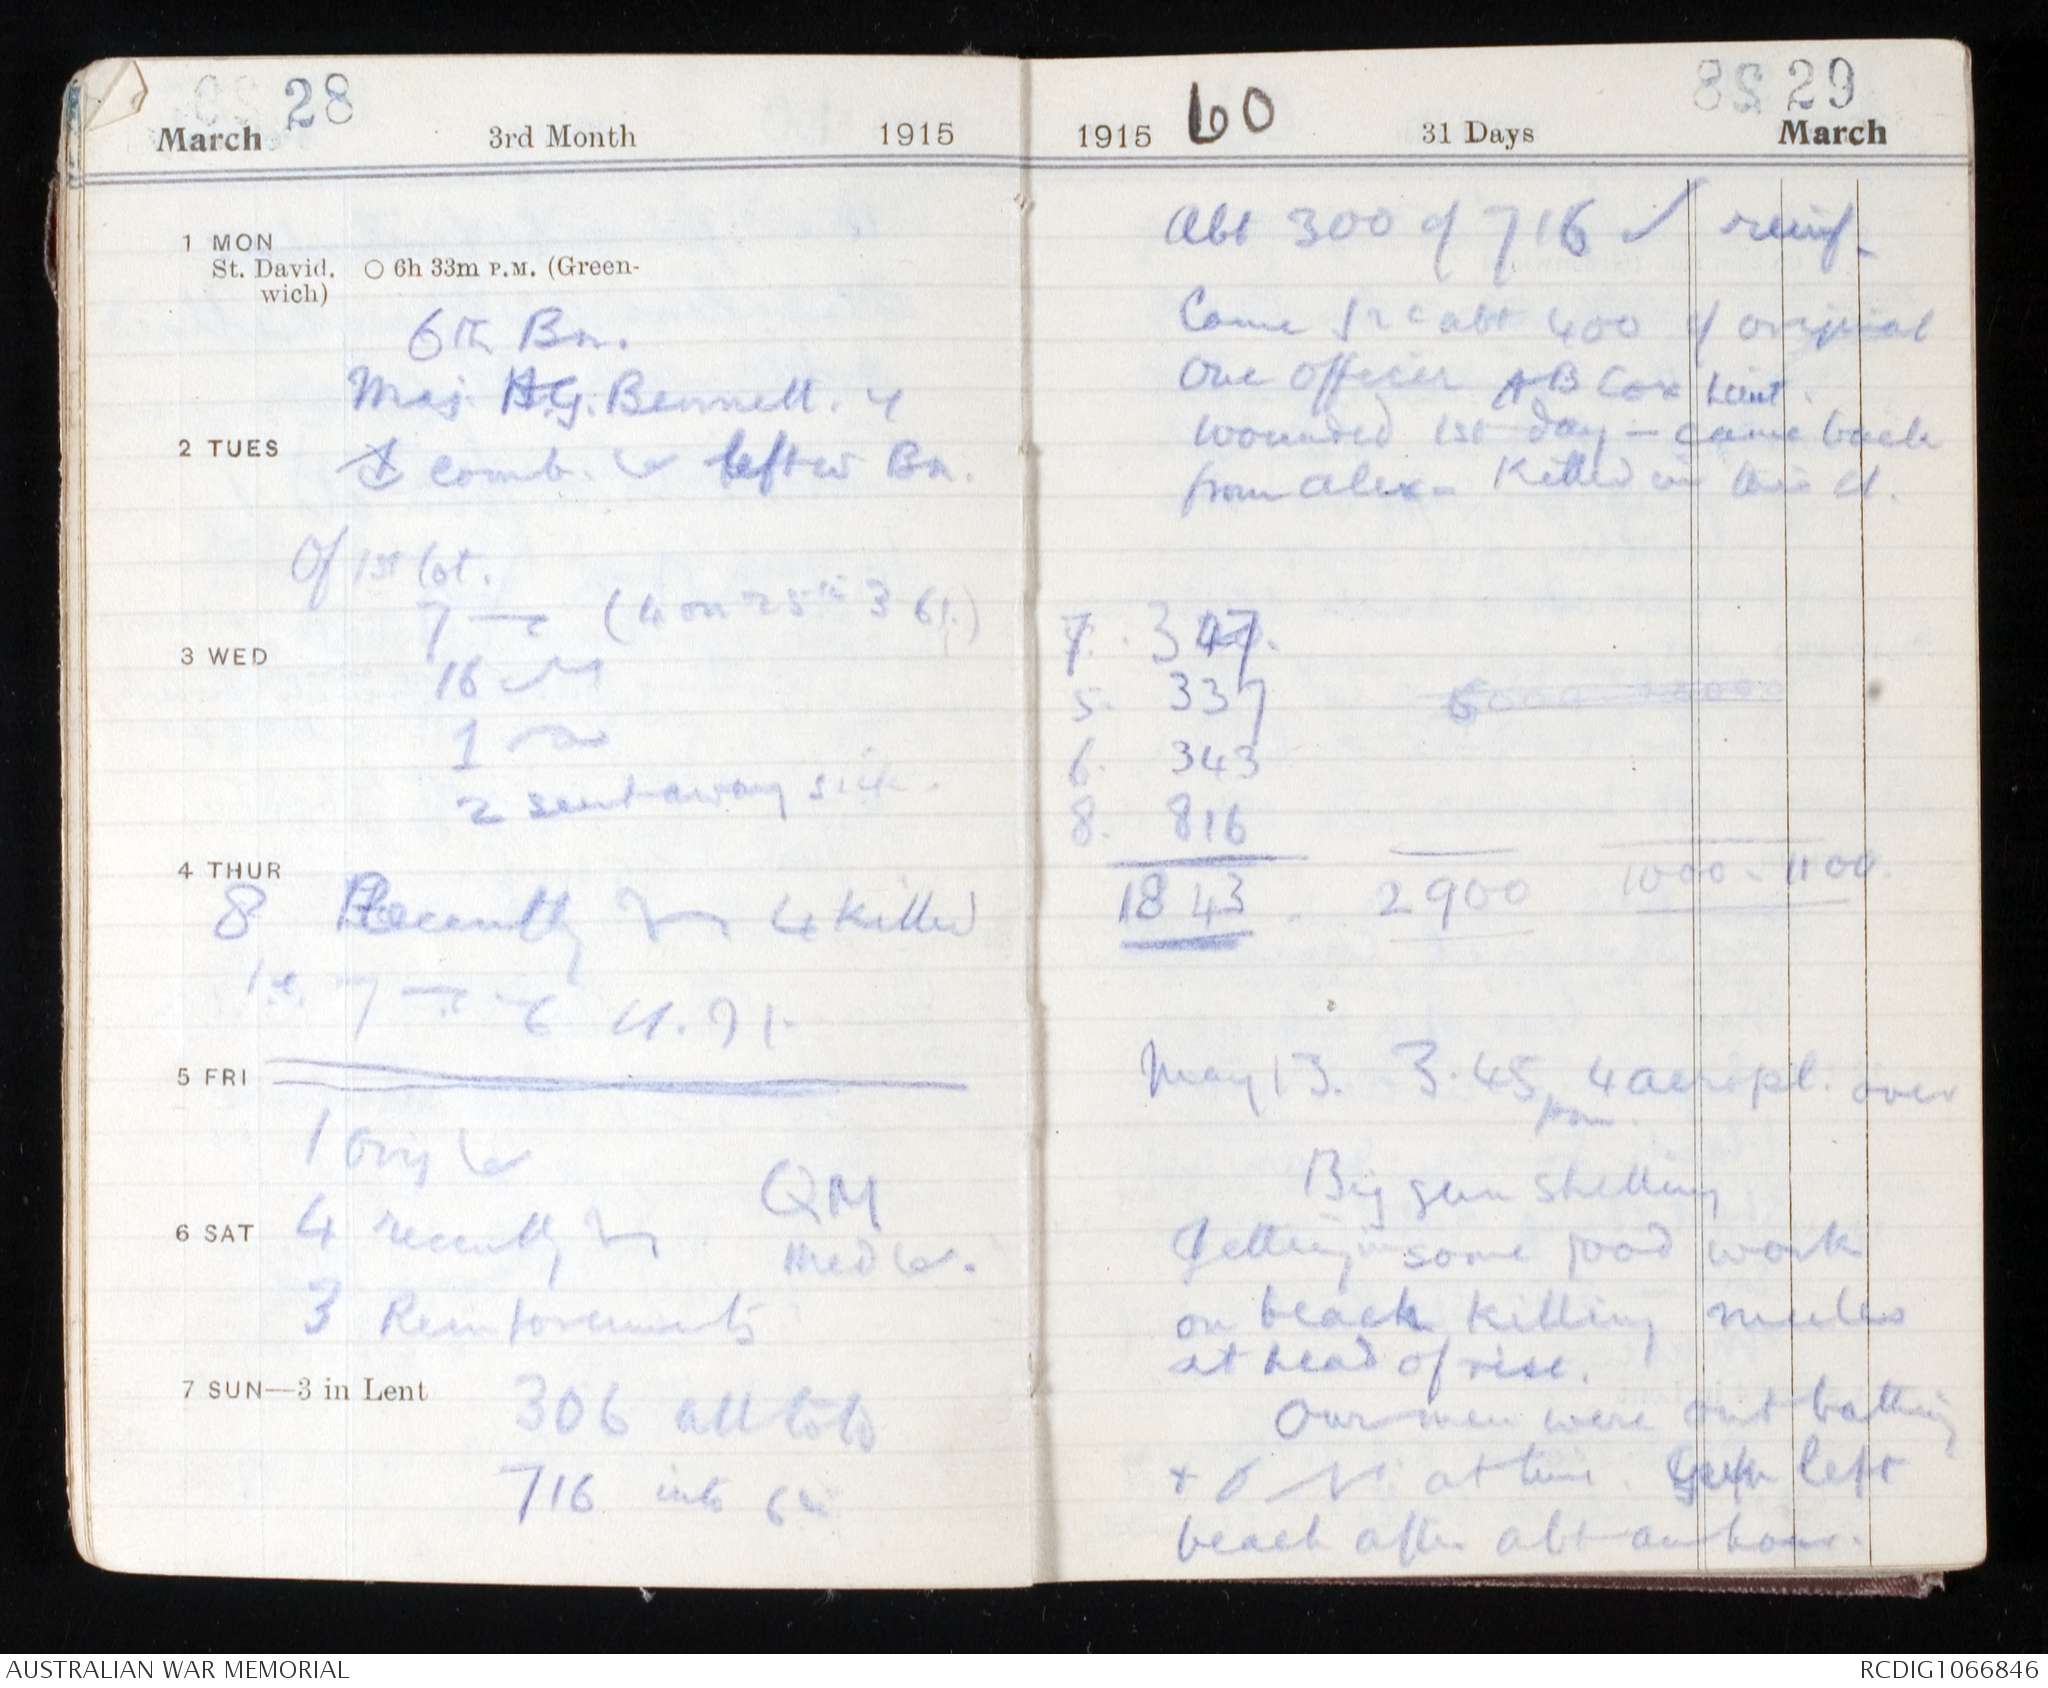 28
March 3rd Month 1915
1 MON
St. David. ○ 6h 33m P.M. (Green-
wich)
6th Bn.
Maj. H.G. Bennett. &
2 TUES
comb. left w Bn.
Of 1st lot.
7 (4 on 25th 3 61.)
3 WED
16
1
2 sent away sick.
4 THUR
8 Recently 4 killed
i.e. 7
5 FRI
1 Orig
QM
6 SAT 4 recently
Med
3 Reinforcements
7 SUN—3 in Lent
306 all told
716 into 6th
29
1915 60 31 Days March
Abt 300 of 716 ✓ reinf.
Came abt 400 of original
One officer AB Cox Lieut.
wounded 1st day – came back
from Alex – Killed in
7. 347.
5. 337
6. 343
8. 816
1843. 2900 1000 - 1100.
May 13. 3.45 4 aeropl. over
pm.
Big gun shelling
Getting in some good work
on beach killing mules
at head of rise.
Our men were out bathing
+ at time. left
beach after abt an hour.
AUSTRALIAN WAR MEMORIAL
RCDIG1066846